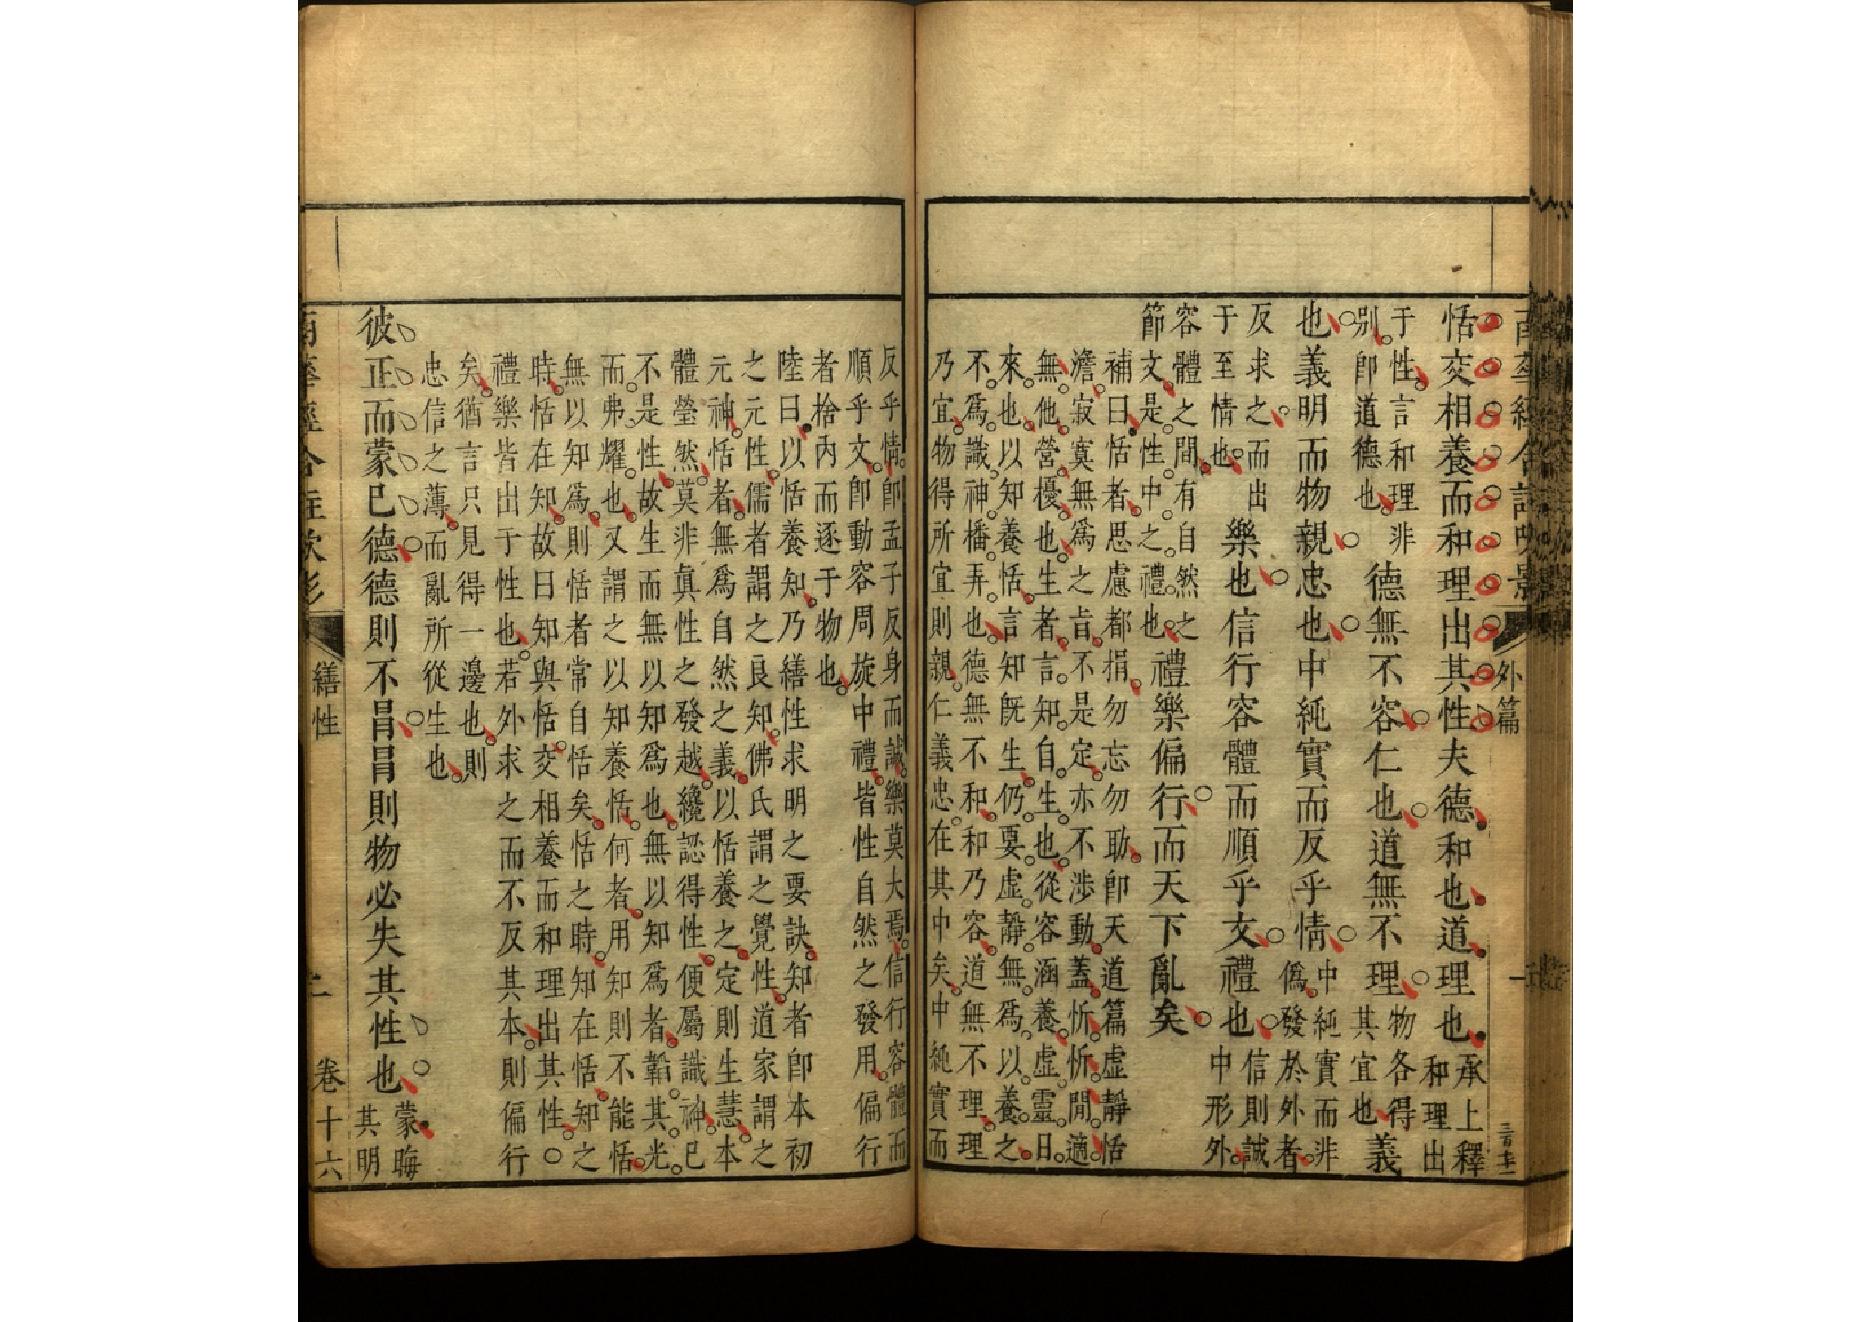 南華經合註吹影 外篇 一
恬交相養而和理出其性夫德和也道理也承上釋
和理出
于性言和理非
别卽道德也
德無不容仁也道無不理物各得
其宜也
義
也義明而物親忠也中純實而反乎情中純實而非
僞發於外者
反求之而出
于至情也
樂也信行容體而順乎文禮也信則誠
中形外
容體之間有自然之
節文是性中之禮也
禮樂偏行而天下亂矣
補曰恬者思慮都捐勿忘勿助卽天道篇虛靜恬
澹寂寞無爲之旨不是定亦不涉動蓋忻忻閒適
無他營擾也生者言知自生也從容涵養虛靈日
來也以知養恬言知旣生仍要虛靜無爲以養之
不爲識神播弄也德無不和和乃容道無不理理
乃宜物得所宜則親仁義忠在其中矣中純實而
反乎情卽孟子反身而誠樂莫大焉信行容體而
順乎文卽動容周旋中禮皆性自然之發用偏行
者捨內而逐于物也
陸曰以恬養知乃繕性求明之要訣知者卽本初
之元性儒者謂之良知佛氏謂之覺性道家謂之
元神恬者無爲自然之義以恬養之定則生慧本
體瑩然莫非眞性之發越纔認得性便屬識神已
不是性故生而無以知爲也無以知爲者韜其光
而弗耀也又謂之以知養恬何者用知則不能恬
無以知爲則恬者常自恬矣恬之時知在恬知之
時恬在知故曰知與恬交相養而和理出其性
禮樂皆出于性也若外求之而不反其本則偏行
矣猶言只見得一邊也則
忠信之薄而亂所從生也
彼正而蒙已德德則不冒冒則物必失其性也蒙晦
其明
南華經合註吹影 繕性 二 卷十六